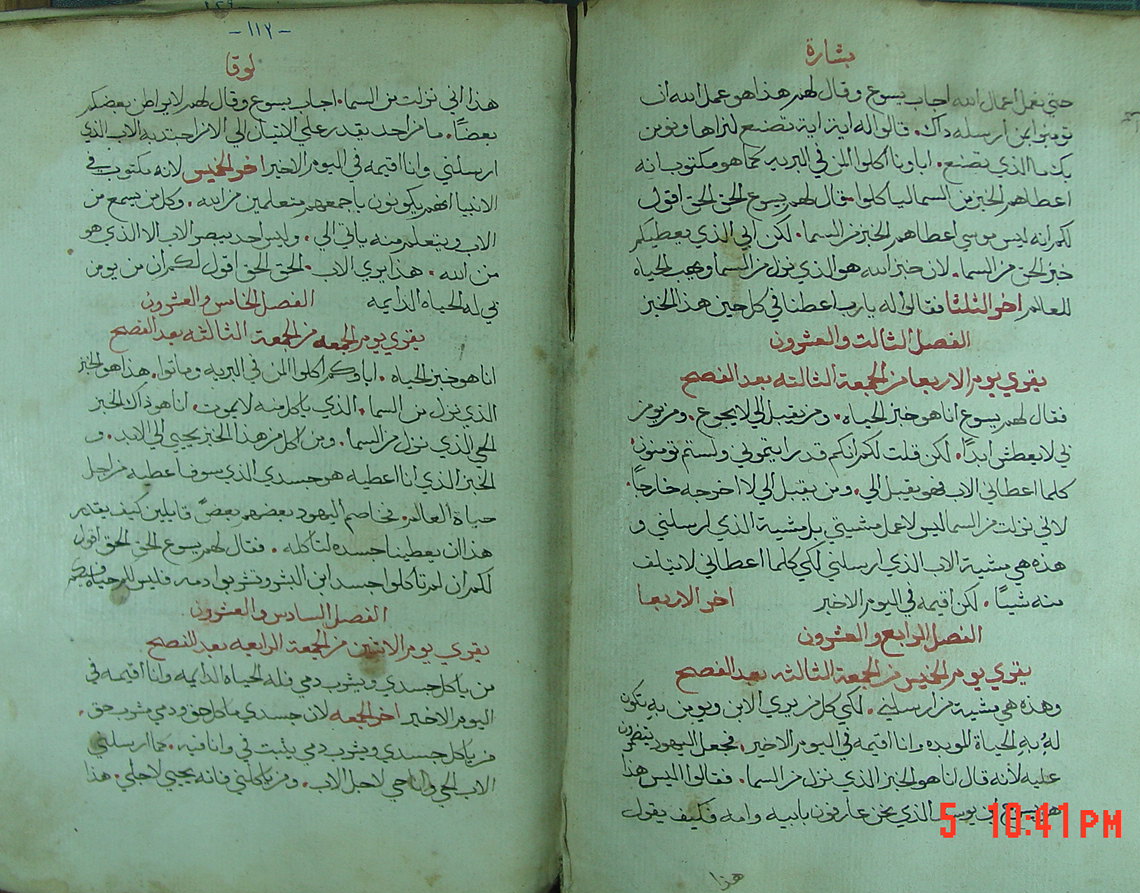 بشارة
حتي نعمل اعمال الله اجاب يسوع وقال لهم هذا هو عمل الله أن
تومنوا بمن ارسله ذاك. قالوا له اية اية تصنع لنراها ونومن
بك ما الذي تصنع. اباونا اكلوا المن في البريه كما هو مكتوب انه
اعطاهم الخبز من السما لياكلوا. قال لهم يسوع الحق الحق اقول
لكم انه ليس موسي اعطاهم الخبز من السما. لكن ابي الذي يعطيكم
خبز الحق من السما. لان خبز الله هو الذي نزل من السما ويهب الحياه
للعالم اخر الثلثا فقالوا له يارب اعطنا في كل حين هذا الخبز
الفصل الثالث والعشرون
يقري يوم الاربعا من الجمعة الثالثه بعد الفصح
فقال لهم يسوع انا هو خبز الحياه. ومن يقبل الي لا يجوع. ومن يومن
بي لا يعطش ابدًا. لكن قلت لكم انكم قد رايتموني ولستم تومنون.
كلما اعطاني الاب فهو يقبل الي. ومن يقبل الي لا اخرجه خارجاً.
لاني نزلت من السما ليس لاعمل مشيتي بل مشية الذي ارسلني و
هذه هي مشية الاب الذي ارسلني لكي كلما اعطاني لا يتلف
منه شيئاً. لكن اقيمه في اليوم الاخير اخر الاربعا
الفصل الرابع والعشرون
يقري يوم الخميس من الجمعة الثالثه بعد الفصح
وهذه هي مشية من ارسلني. لكي كل من يري الابن ويومن به تكون
لهُ بهِ الحياة الموبده وانا اقيمه في اليوم الاخير. فجعل اليهود يتقمقمون
عليه لأنه قال انا هو الخبز الذي نزل من السما. فقالوا اليس هذا
هو يسوع ابن يوسف الذي نحن عارفون بابيه وامه فكيف يقول
هذا
-١١٦-
لوقا
هذا اني نزلت من السما. اجاب يسوع وقال لهم لا يواطن بعضكم
بعضاً. ما من احد يقدر علي الاتيان الي الا من اجتذبه الاب الذي
ارسلني وانا اقيمه في اليوم الاخير اخر الخميس لانه مكتوب في
الانبيا انهم يكونون باجمعهم متعلمين من الله. وكل من يسمع من
الاب ويتعلم منه ياتي الي. وليس احد يبصر الاب الا الذي هو
من الله. هذا يري الاب. الحق الحق اقول لكم ان من يومن
بي له الحياه الدايمه الفصل الخامس والعشرون
يقري يوم الجمعه من الجمعة الثالثه بعد الفصح
انا هو خبز الحياه. اباوكم اكلوا المن في البريه وماتوا. هذا هو الخبز
الذي نزل من السما. الذي ياكل منه لا يموت. انا هو ذاك الخبز
الحي الذي نزل من السما. ومن اكل من هذا الخبز يحيي الي الابد. و
الخبز الذي انا اعطيه هو جسدي الذي سوف اعطيه من اجل
حياة العالم. فخاصم اليهود بعضهم بعضً قايلين كيف يقدر
هذا ان يعطينا جسده لناكله. فقال لهم يسوع الحق الحق اقول
لكم ان لم تاكلوا جسد ابن البشر وتشربوا دمه فليس لكم حياه فيكم
الفصل السادس والعشرون
يقري يوم الاثنين من الجمعة الرابعه بعد الفصح
من ياكل جسدي ويشرب دمي فله الحياه الدايمه وانا اقيمه في
اليوم الاخير اخر الجمعه لان جسدي ماكل حق ودمي مشرب حق.
من ياكل جسدي ويشرب دمي يثبت في وانا فيه. كما ارسلني
الاب الحي وانا حي لاجل الاب. ومن ياكلني فانه يحيي لاجلي. هذا
5 10:41 PM